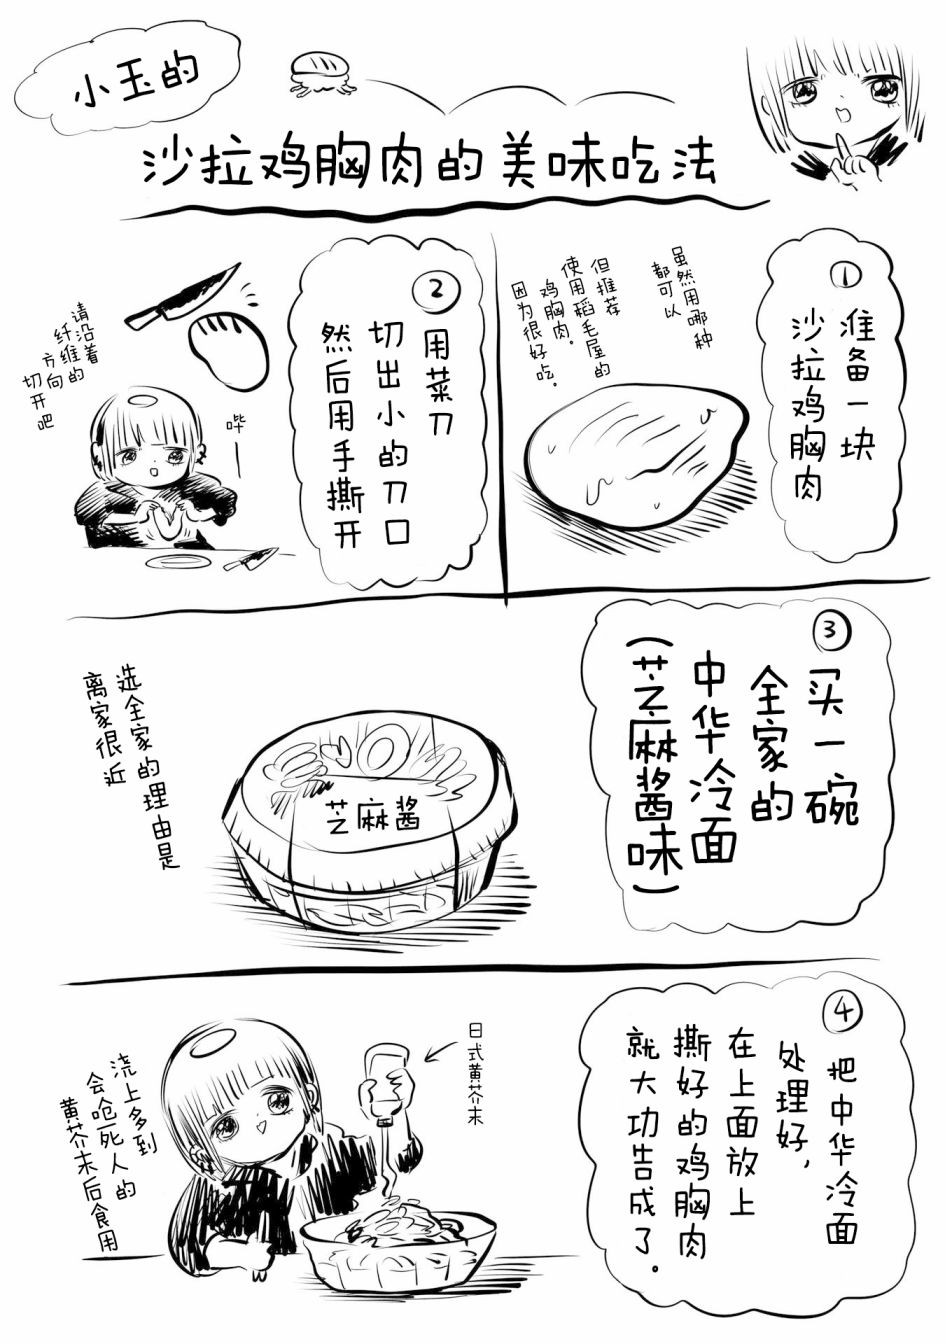 小玉的
沙拉鸡胸肉的美味吃法
①
准备一块
沙拉鸡胸肉
虽然用哪种
都可以
但推荐
使用稻毛屋的
鸡胸肉.
因为很好吃.
②
用菜刀
切出小的刀口
然后用手撕开
请沿着
纤维的
方向
切开吧
哗
③
买一碗
全家的
中华冷面
(芝麻酱味)
芝麻酱
选全家的理由是
离家很近
④
把中华冷面
处理好,
在上面放上
撕好的鸡胸肉
就大功告成了.
日式黄芥末
浇上多到
会呛死人的
黄芥末后食用